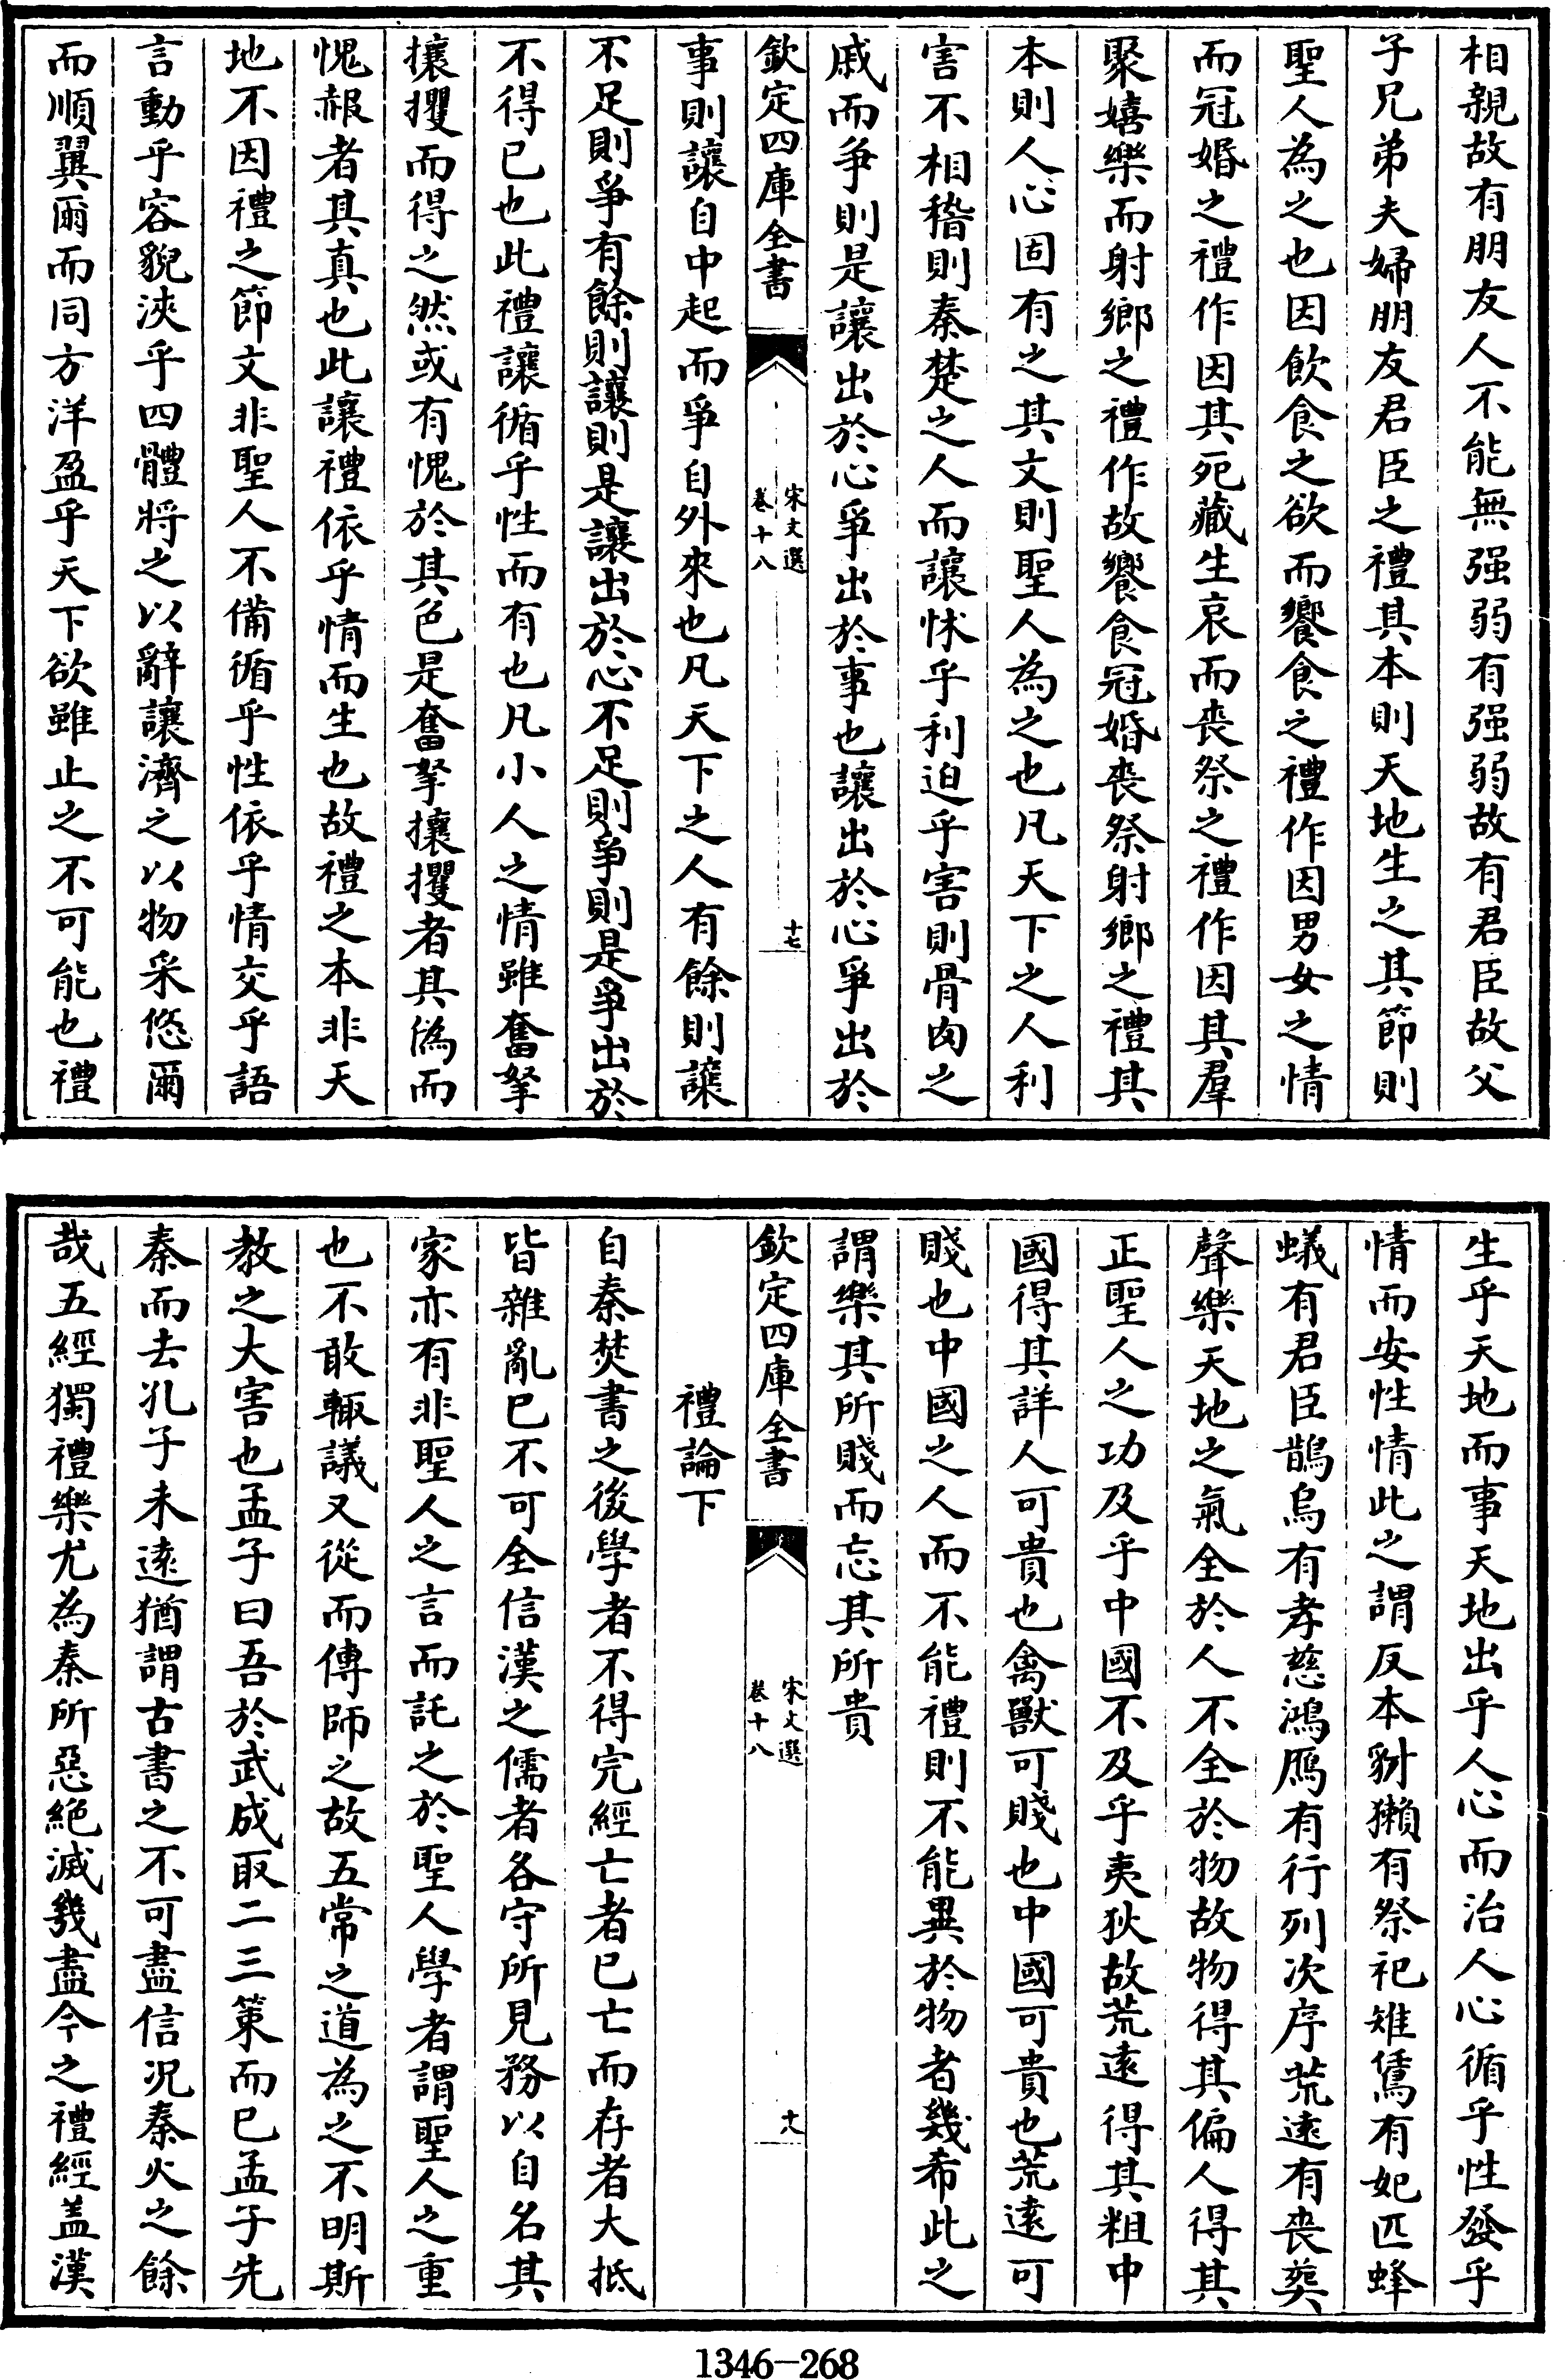 相親故有朋友人不能無强弱有强弱故有君臣故父
子兄弟夫婦朋友君臣之禮其本則天地生之其節則
聖人為之也因飲食之欲而饗食之禮作因男女之情
而冠婚之禮作因其死藏生哀而喪祭之禮作因其羣
聚嬉樂而射鄉之禮作故饗食冠婚喪祭射鄉之禮其
本則人心固有之其文則聖人為之也凡天下之人利
害不相稽則秦楚之人而讓怵乎利迫乎害則骨肉之
戚而爭則是讓出於心爭出於事也讓出於心爭出於
欽定四庫全書
宋文選
卷十八
十七
事則讓自中起而爭自外來也凡天下之人有餘則讓
不足則爭有餘則讓則是讓出於心不足則爭則是爭出於
不得已也此禮讓循乎性而有也凡小人之情雖奮拏
攘攫而得之然或有愧於其色是奮拏攘攫者其偽而
愧赧者其真也此讓禮依乎情而生也故禮之本非天
地不因禮之節文非聖人不備循乎性依乎情交乎語
言動乎容貌浹乎四體將之以辭讓濟之以物采悠爾
而順翼爾而同方洋盈乎天下欲雖止之不可能也禮
生乎天地而事天地出乎人心而治人心循乎性發乎
情而安性情此之謂反本豺獺有祭祀雉鴈有妃匹蜂
蟻有君臣鵲烏有孝慈鴻鴈有行列次序荒遠有喪葬
聲樂天地之氣全於人不全於物故物得其偏人得其
正聖人之功及乎中國不及乎夷狄故荒遠得其粗中
國得其詳人可貴也禽獸可賤也中國可貴也荒遠可
賤也中國之人而不能禮則不能異於物者幾希此之
謂樂其所賤而忘其所貴
欽定四庫全書
宋文選
卷十八
十八
禮論下
自秦焚書之後學者不得完經亡者已亡而存者大抵
皆雜亂已不可全信漢之儒者各守所見務以自名其
家亦有非聖人之言而託之於聖人學者謂聖人之重
也不敢輒議又從而傳師之故五常之道為之不明斯
教之大害也孟子曰吾於武成取二三策而已孟子先
秦而去孔子未遠猶謂古書之不可盡信况秦火之餘
哉五經獨禮樂尤為秦所惡絕滅幾盡今之禮經蓋漢
1346-268